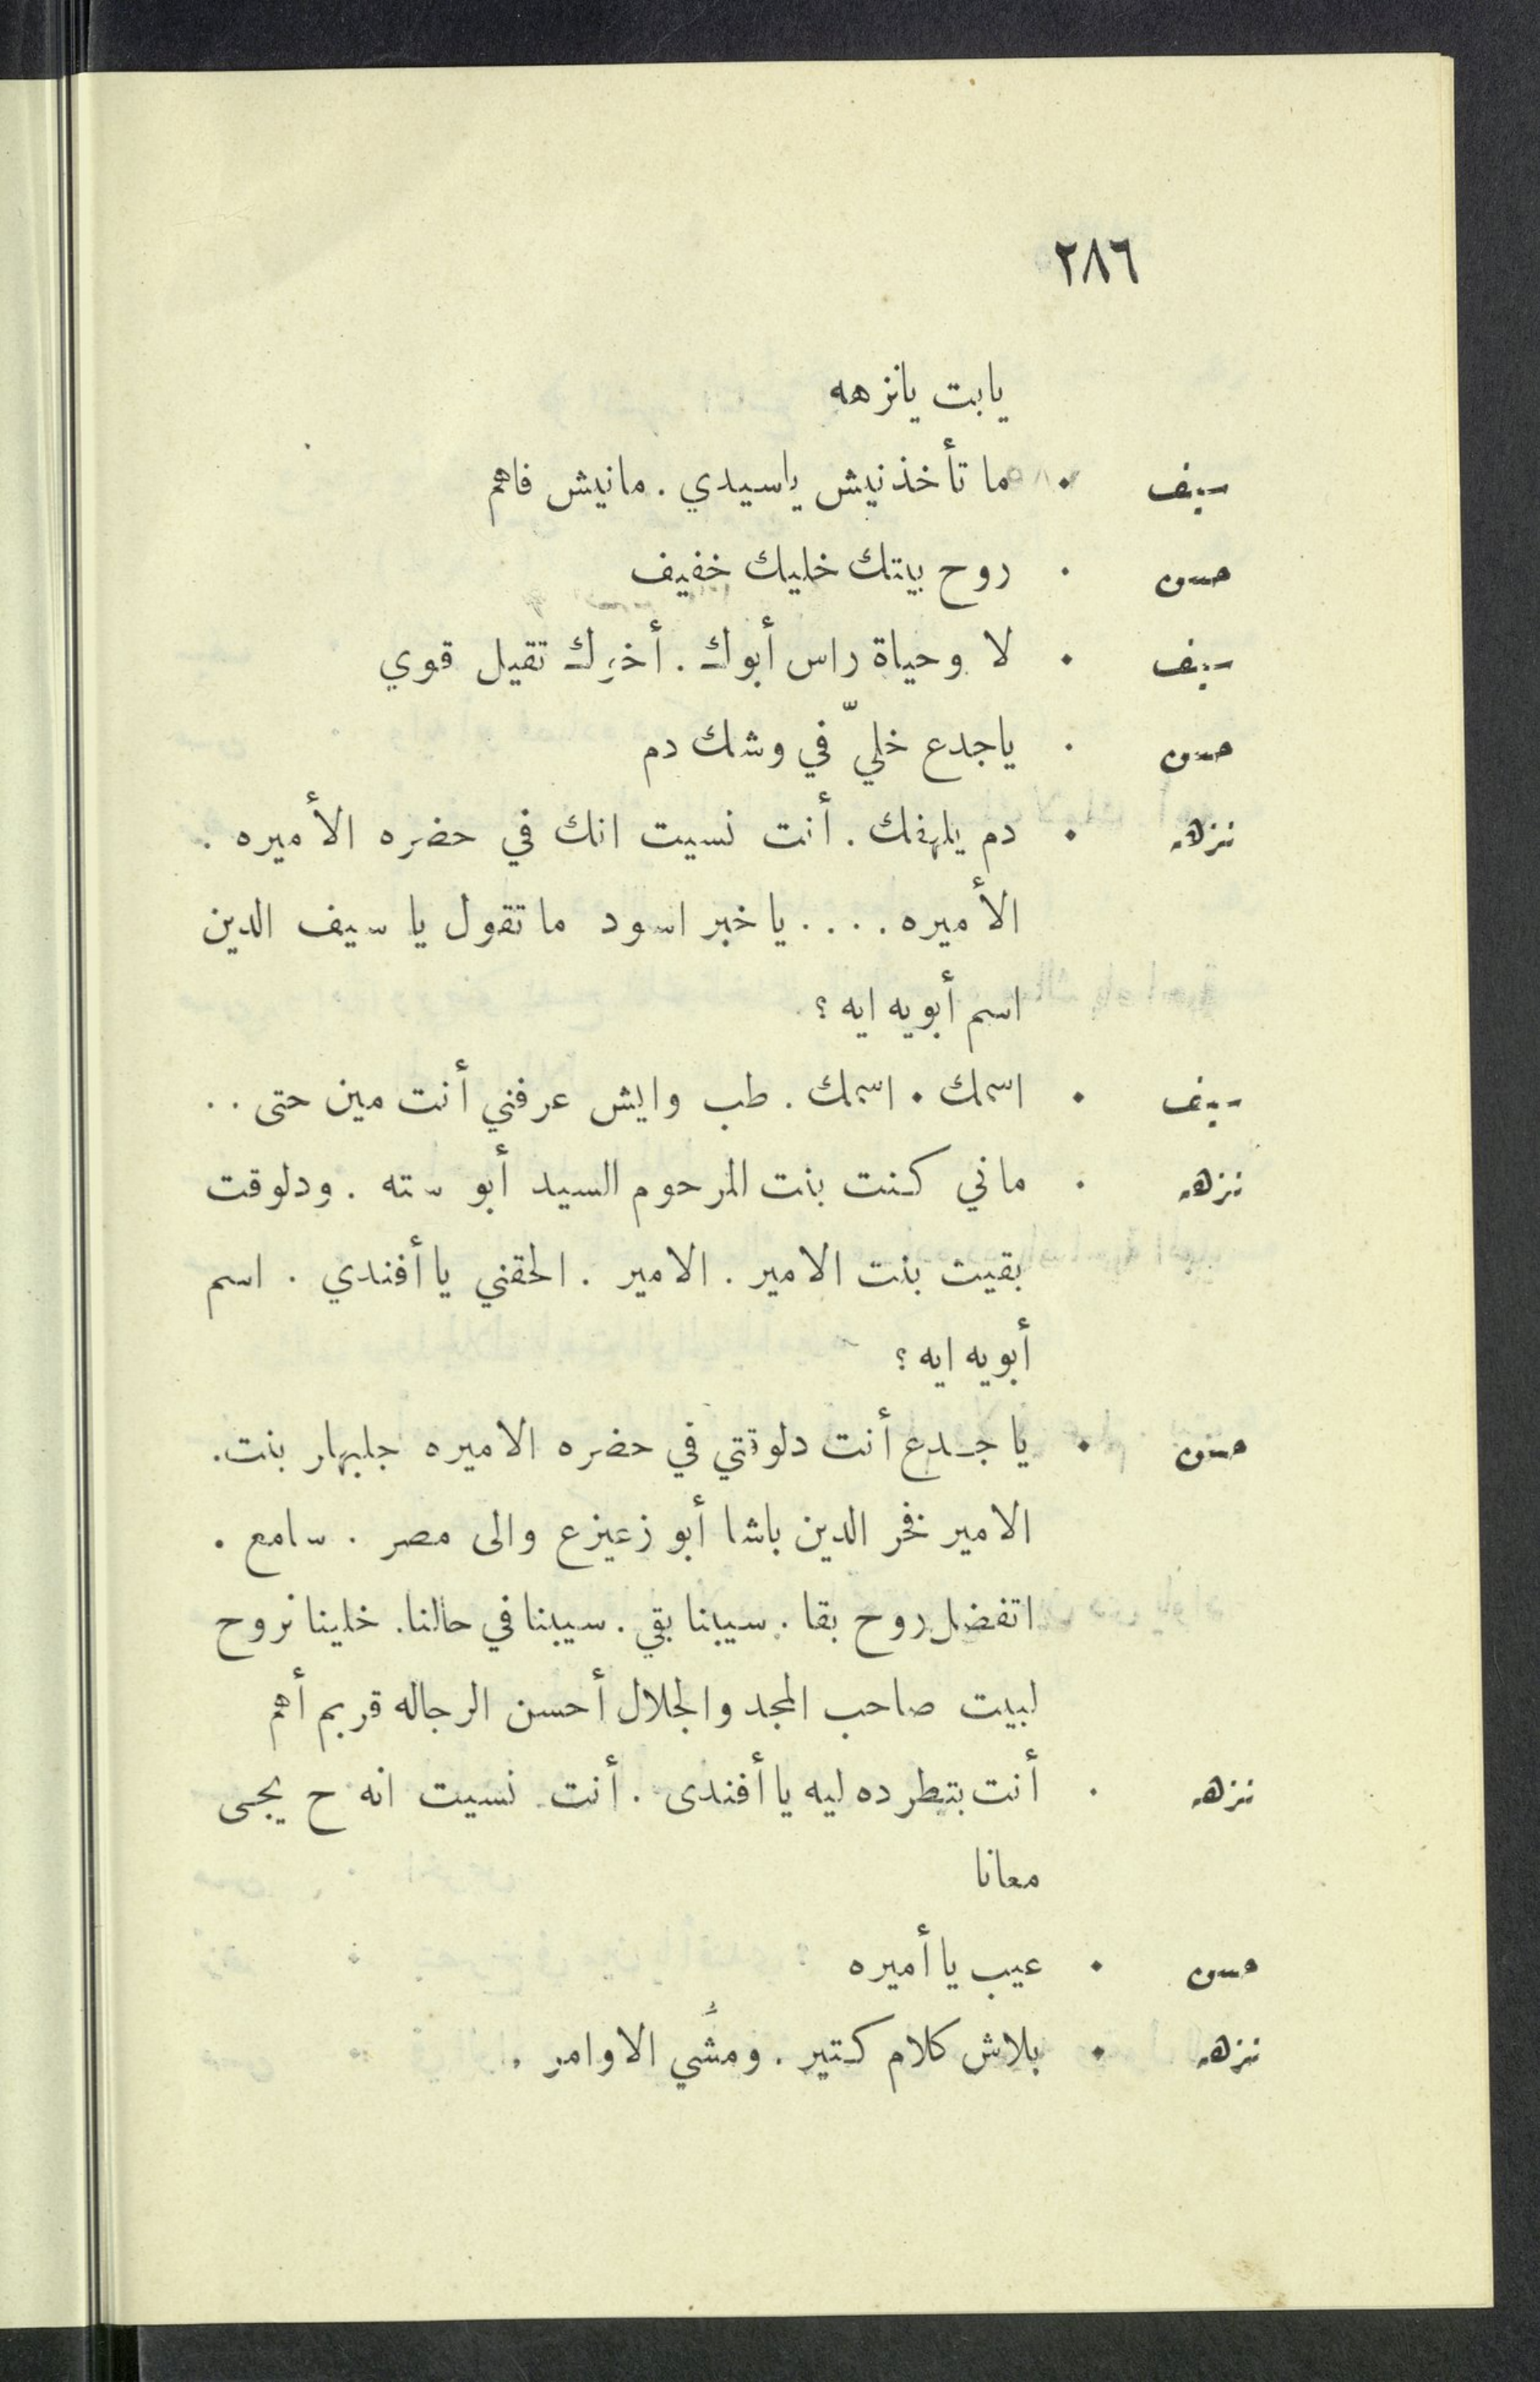 ٢٨٦
يابت يانزهه
سيف . ما تأخذنيش ياسيدي . مانيش فاهم
حسن . روح بيتك خليك خفيف
سيف . لا وحياة راس أبوك . أخرك تقيل قوي
حسن . ياجدع خليّ في وشك دم
نزهه . دم يلهفك . أنت نسيت انك في حضره الأميره .
الأميره .... ياخبر اسود ما تقول يا سيف الدين
اسم أبويه ايه ؟
سيف . اسمك . اسمك . طب وايش عرفني أنت مين حتى ..
نزهه . ماني كنت بنت المرحوم السيد أبو سته . ودلوقت
بقيت بنت الامير . الامير . الحقني يا أفندي . اسم
أبويه ايه ؟
حسن . يا جدع أنت دلوقتي في حضره الاميره جلبهار بنت.
الامير فخر الدين باشا أبو زعيزع والى مصر . سامع .
اتفضل روح بقا . سيبنا بقي . سيبنا في حالنا. خلينا نروح
لبيت صاحب المجد والجلال أحسن الرجاله قربم أهم
نزهه . أنت بتطرده ليه يا أفندى . أنت نسيت انه ح يجى
معانا
حسن . عيب يا أميره
نزهه . بلاش كلام كتير . ومشَّي الاوامر .